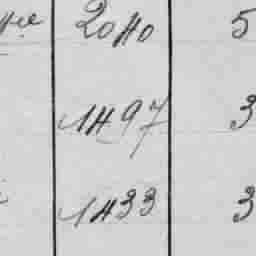 2040 5
1497 3
1433 3